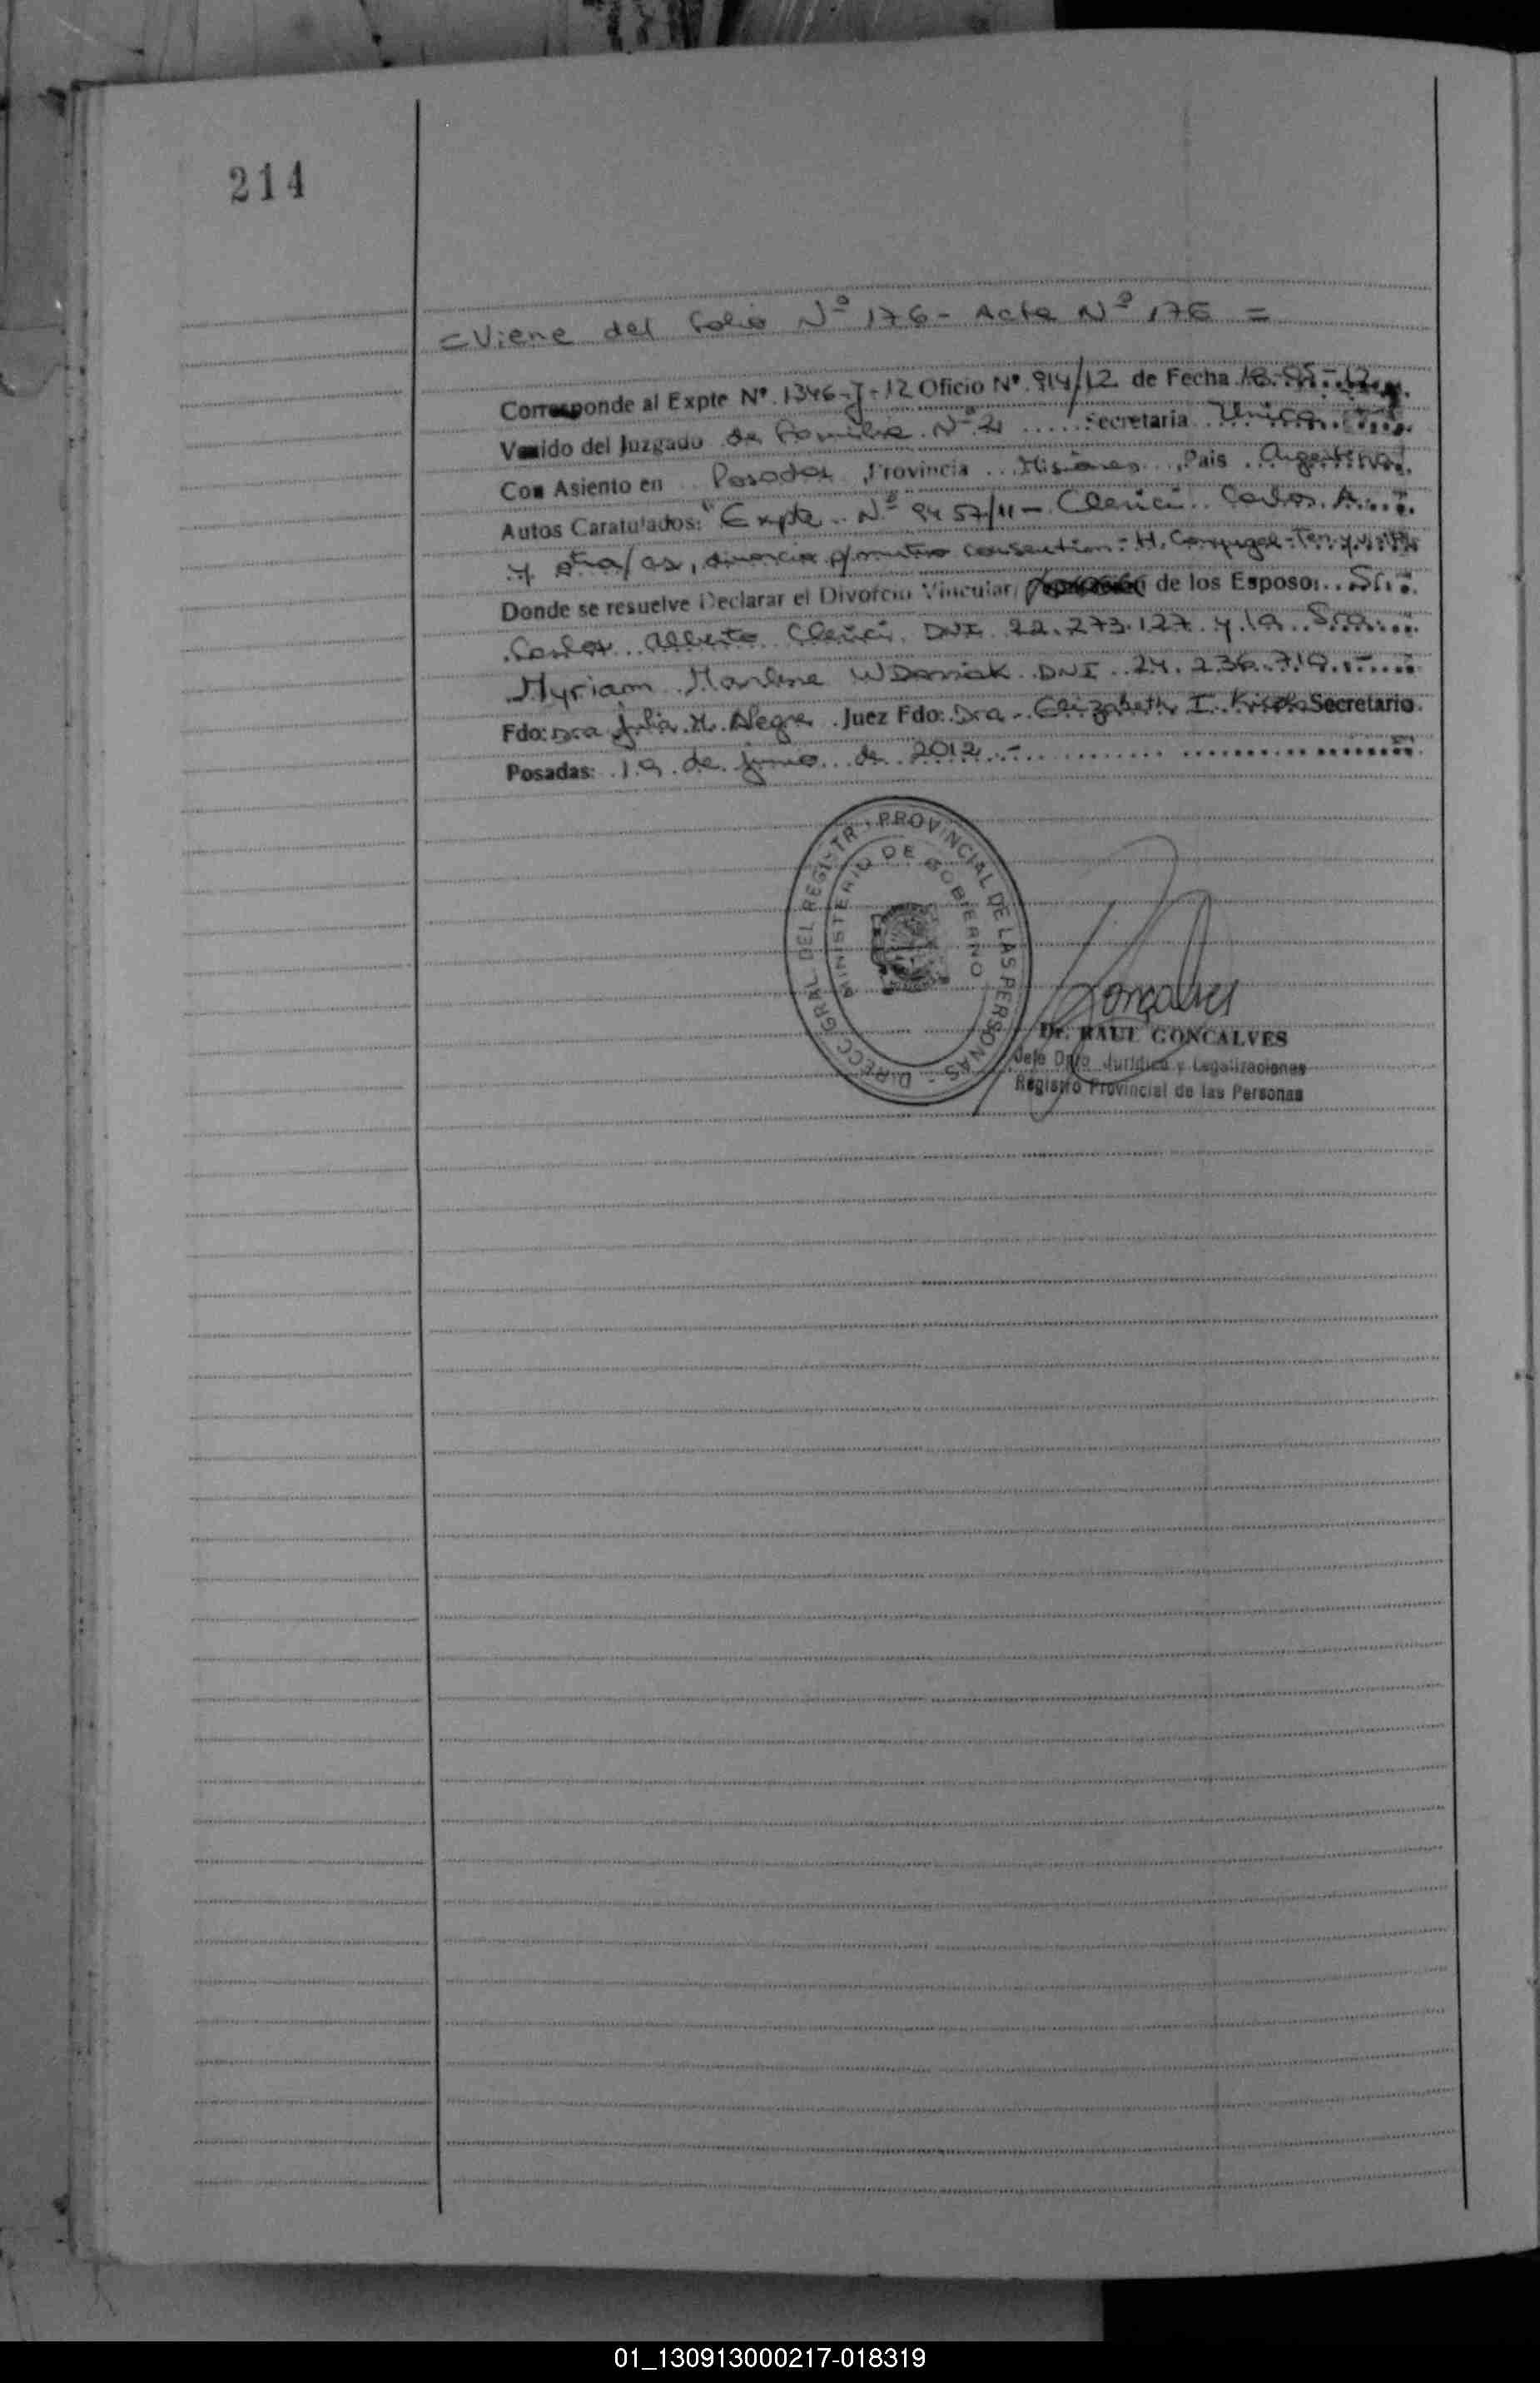 214
= Viene del folio Nº 176 - Acta Nº 176 =
Corresponde al Expte Nº. 1346-J-12 Oficio Nº. 914/12 de Fecha 18-05-12
Venido del Juzgado de Familia Nº 2 Secretaria Unica
Con Asiento en Posadas, Provincia Misiones, Pais Argentina
Autos Caratulados: "Expte. Nº 9457/11 - Clerici Carlos A.
y otra/os, divorcio p/mutuo - H. Conyugal - Ten. y
Donde se resuelve Declarar el Divorcio Vincular, de los Esposo: Sr.
Carlos Alberto Clerici DNI 22.273.127 y la Sra.
Myriam Marlene DNI 24.236.719
Fdo: Dra Julia H. Alegre Juez Fdo: Dra. Elizabeth I. Secretario.
Posadas: 19 de junio de 2012.-
DIRECC. GRAL. DEL REGISTR. PROVINCIAL DE LAS PERSONAS -
MINISTERIO DE GOBIERNO
Goncalves
Dr. RAUL GONCALVES
Jefe Dpto. Juridico y Legalizaciones
Registro Provincial de las Personas
01_130913000217-018319